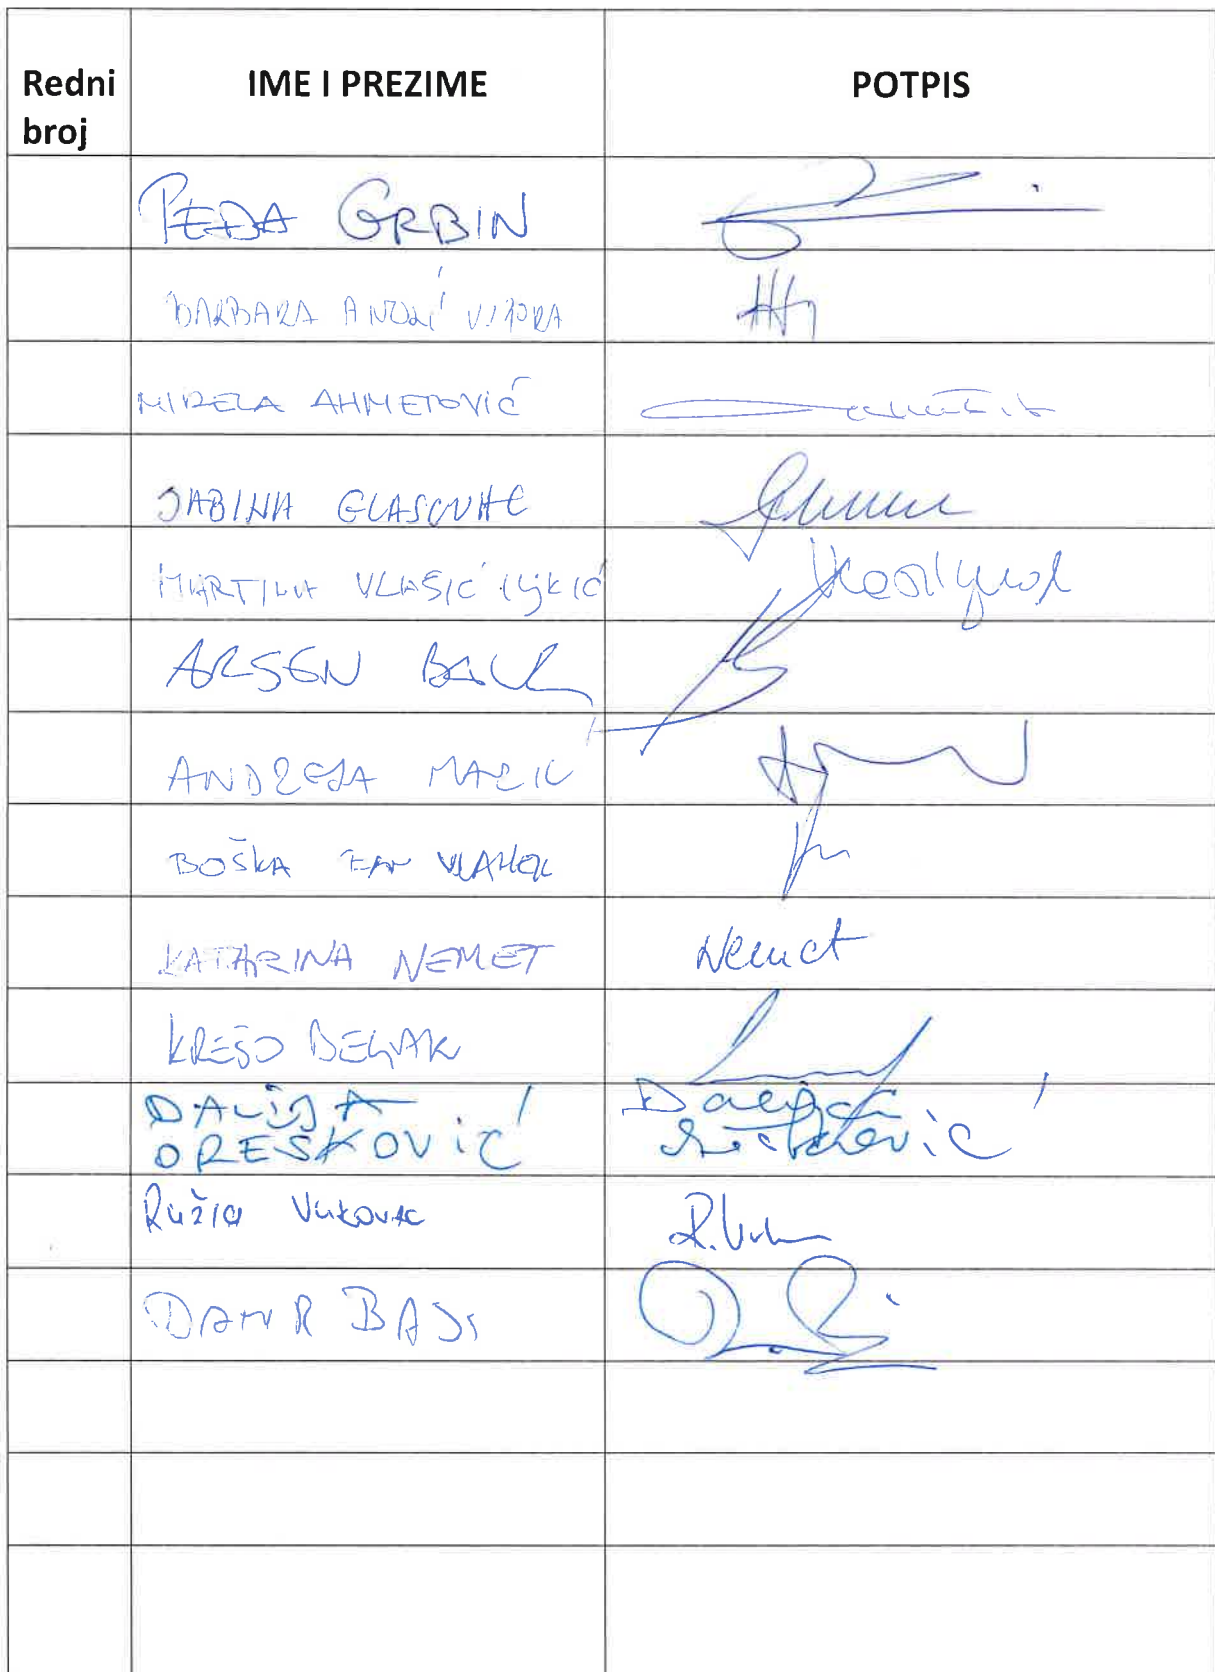 Redni broj IME I PREZIME POTPIS
PEĐA GRBIN
BARBARA ANTOLIĆ VUPORA
MIRELA AHMETOVIĆ
SABINA GLASOVAC
MARTINA VLAŠIĆ ILJKIĆ
ARSEN BAUK
ANDREJA MARIĆ
BOŠKA BAN VLAHEK
KATARINA NEMET Nemet
KREŠO BELJAK
DALIJA Dalija
OREŠKOVIĆ Orešković
Ružica Vukovac R.
DAMIR BAJS